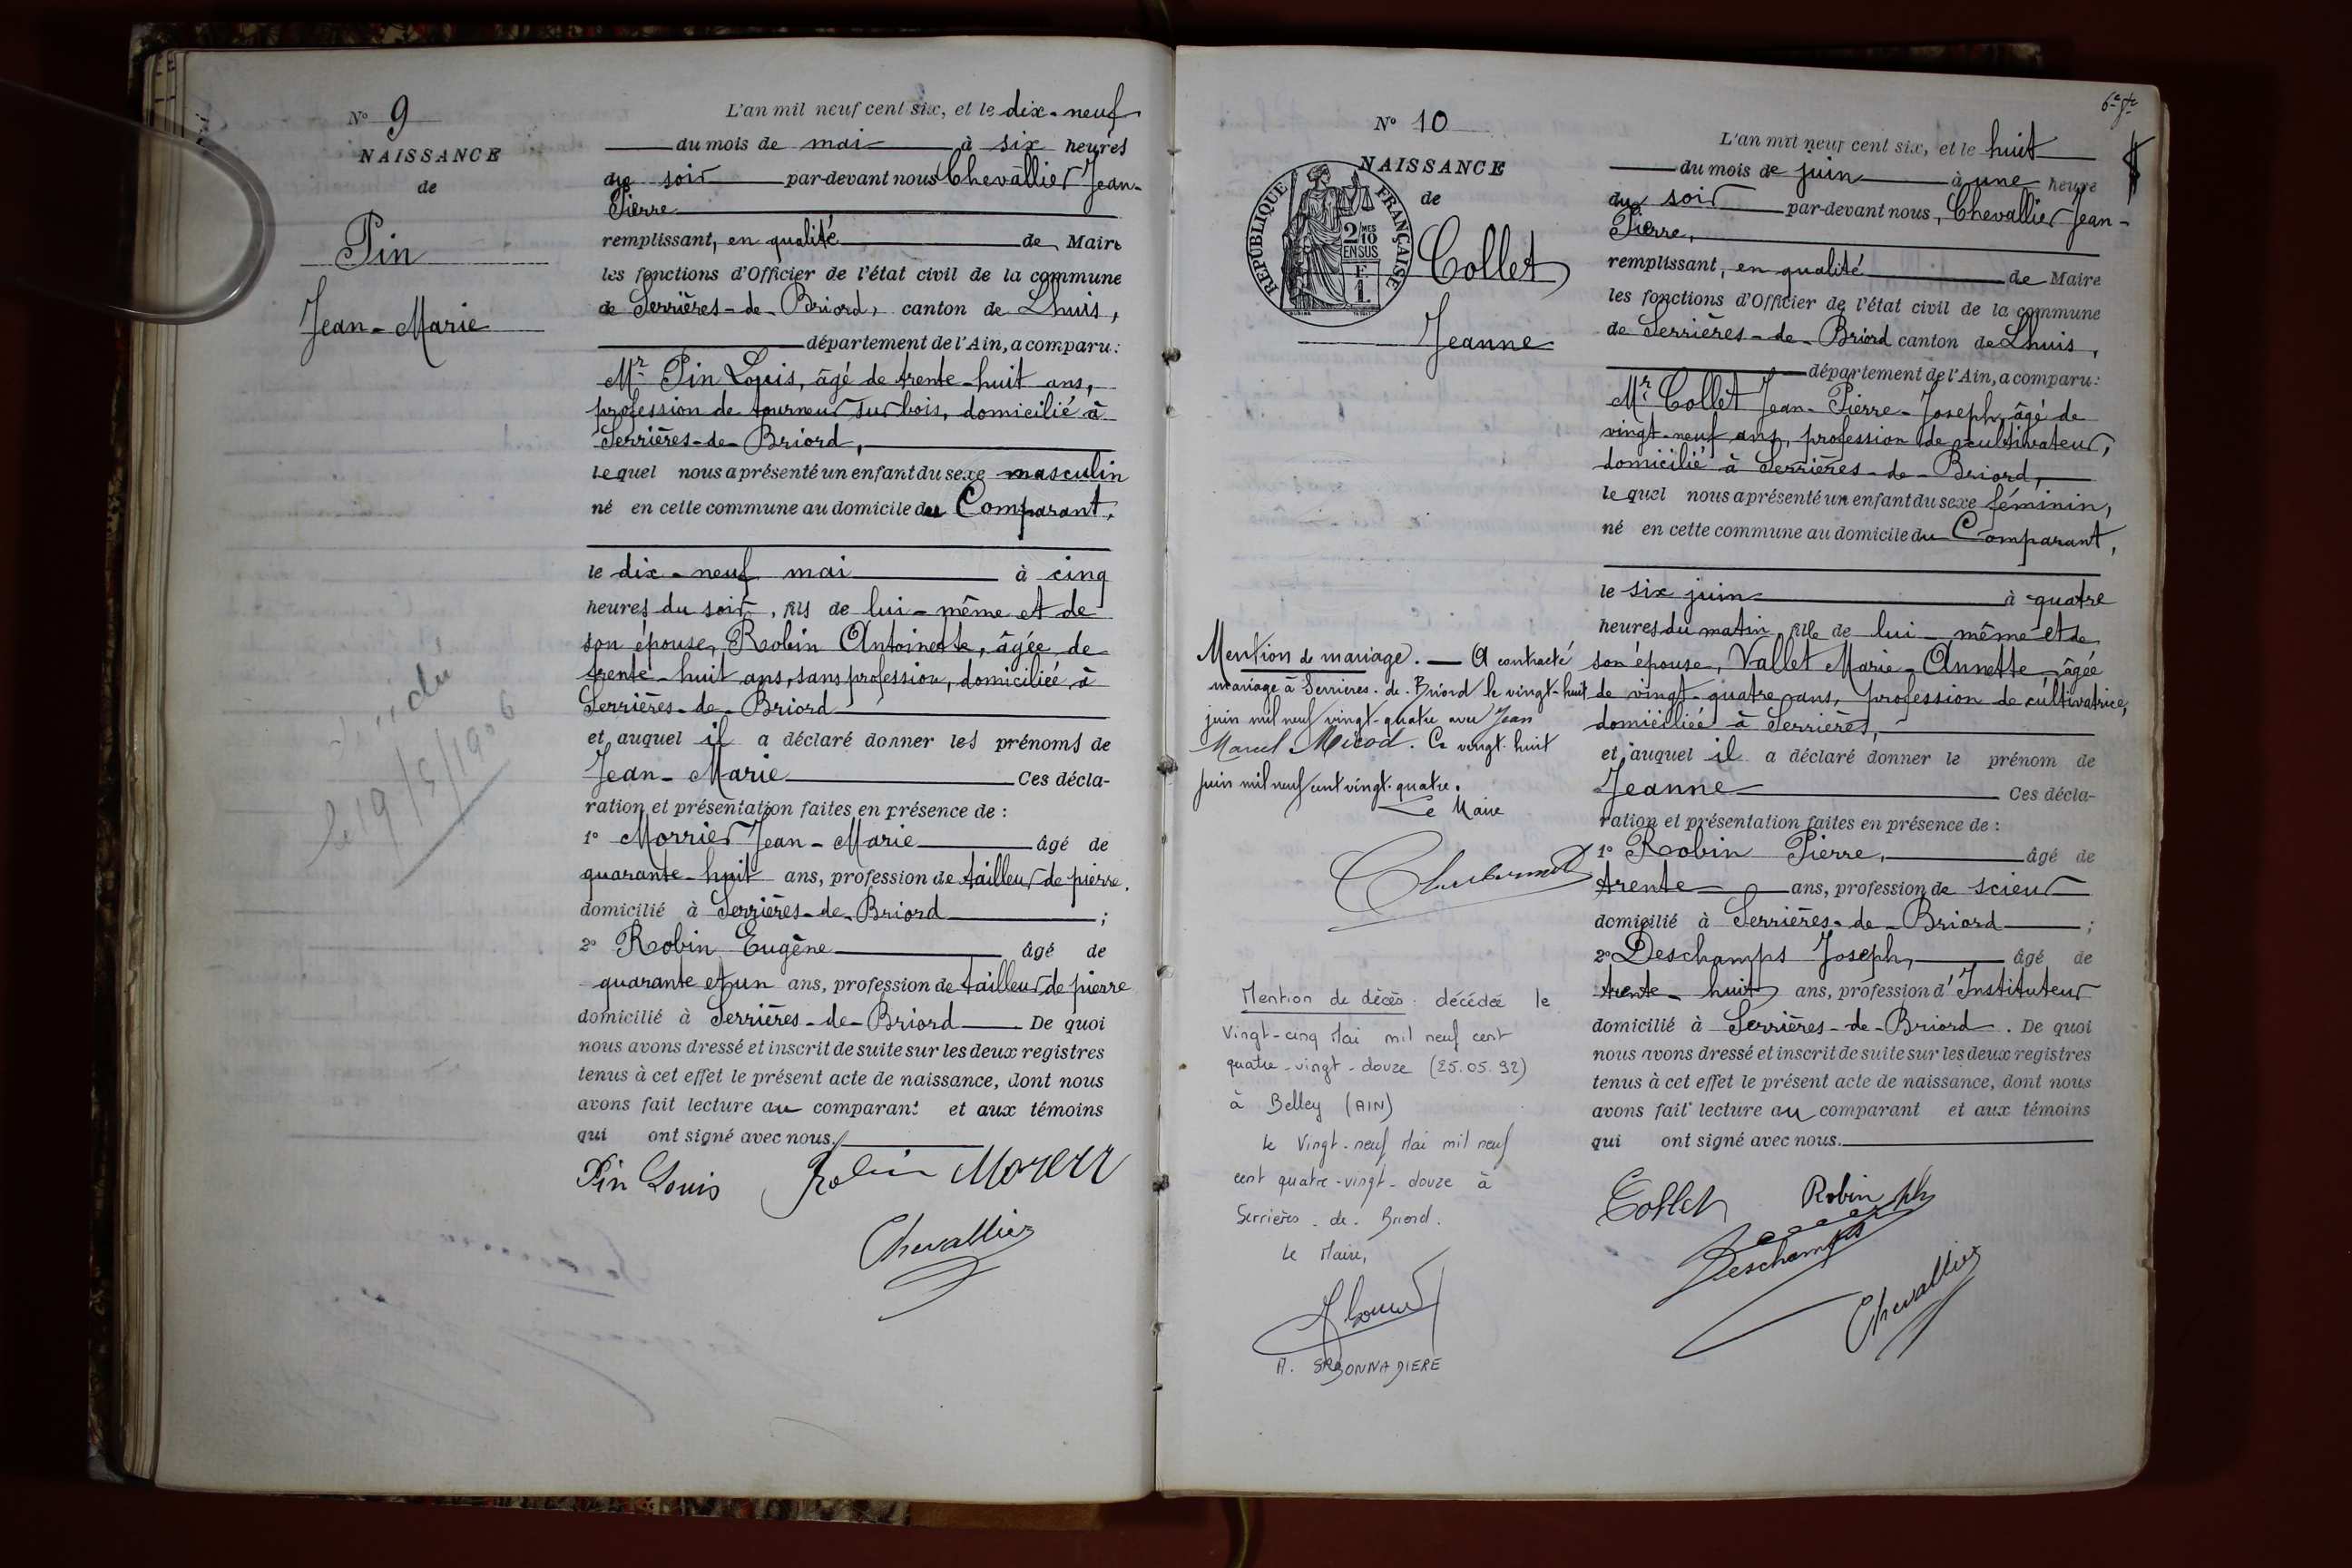 N° 9
NAISSANCE
de
Pin
Jean-Marie
le 19/5/1906
L'an mil neuf cent six, et le dix-neuf
du mois de mai à six heures
du soir par-devant nous Chevallier Jean-
Pierre
remplissant, en qualité de Maire
les fonctions d'Officier de l'état civil de la commune
de Serrières-de-Briord, canton de Lhuis,
département de l'Ain, a comparu:
Mr Pin Louis, âgé de trente-huit ans,
profession de tourneur sur bois, domicilié à
Serrières-de-Briord,
lequel nous a présenté un enfant du sexe masculin
né en cette commune au domicile du Comparant,
le dix-neuf mai à cinq
heures du soir, fils de lui-même et de
son épouse, Robin Antoinette, âgée de
trente-huit ans, sans profession, domiciliée à
Serrières-de-Briord
et auquel il a déclaré donner les prénoms de
Jean-Marie Ces décla-
ration et présentation faites en présence de :
1° Morrier Jean-Marie âgé de
quarante-huit ans, profession de tailleur de pierre.
domicilié à Serrières-de-Briord ;
2° Robin Eugène âgé de
quarante et un ans, profession de tailleur de pierre
domicilié à Serrières-de-Briord De quoi
nous avons dressé et inscrit de suite sur les deux registres
tenus à cet effet le présent acte de naissance, dont nous
avons fait lecture au comparant et aux témoins
qui ont signé avec nous.
Pin Louis Robin
Chevallier
N° 10
NAISSANCE
de
REPUBLIQUE FRANÇAISE
2/MES
10
EN SUS
F
1.
Collet
Jeanne
Mention de mariage. — A contracté
mariage à Serrières-de-Briord le vingt-huit
juin mil neuf vingt-quatre avec Jean
Marcel Micod. Ce vingt-huit
juin mil neuf cent vingt-quatre.
Le Maire
Mention de décès : décédée le
Vingt-cinq Mai mil neuf cent
quatre-vingt-douze (25.05.92)
à Belley (AIN)
Le Vingt-neuf Mai mil neuf
cent quatre-vingt-douze à
Serrières-de-Briord.
Le Maire,
L'an mil neuf cent six, et le huit
du mois de juin à une heure
du soir par-devant nous, Chevallier Jean-
Pierre,
remplissant, en qualité de Maire
les fonctions d'Officier de l'état civil de la commune
de Serrières-de-Briord canton de Lhuis,
département de l'Ain, a comparu:
Mr Collet Jean-Pierre-Joseph, âgé de
vingt-neuf ans, profession de cultivateur,
domicilié à Serrières-de-Briord,
lequel nous a présenté un enfant du sexe féminin,
né en cette commune au domicile du Comparant,
le six juin à quatre
heures du matin fille de lui-même et de
son épouse, Vallet Marie-Annette, âgée
de vingt-quatre ans, profession de cultivatrice,
domiciliée à Serrières,
et auquel il a déclaré donner le prénom de
Jeanne Ces décla-
ration et présentation faites en présence de :
1° Robin Pierre, âgé de
trente ans, profession de scieur
domicilié à Serrières-de-Briord ;
2° Deschamps Joseph, âgé de
trente-huit ans, profession d'Instituteur
domicilié à Serrières-de-Briord. De quoi
nous avons dressé et inscrit de suite sur les deux registres
tenus à cet effet le présent acte de naissance, dont nous
avons fait lecture au comparant et aux témoins
qui ont signé avec nous.
Collet Robin
Deschamps
Chevallier